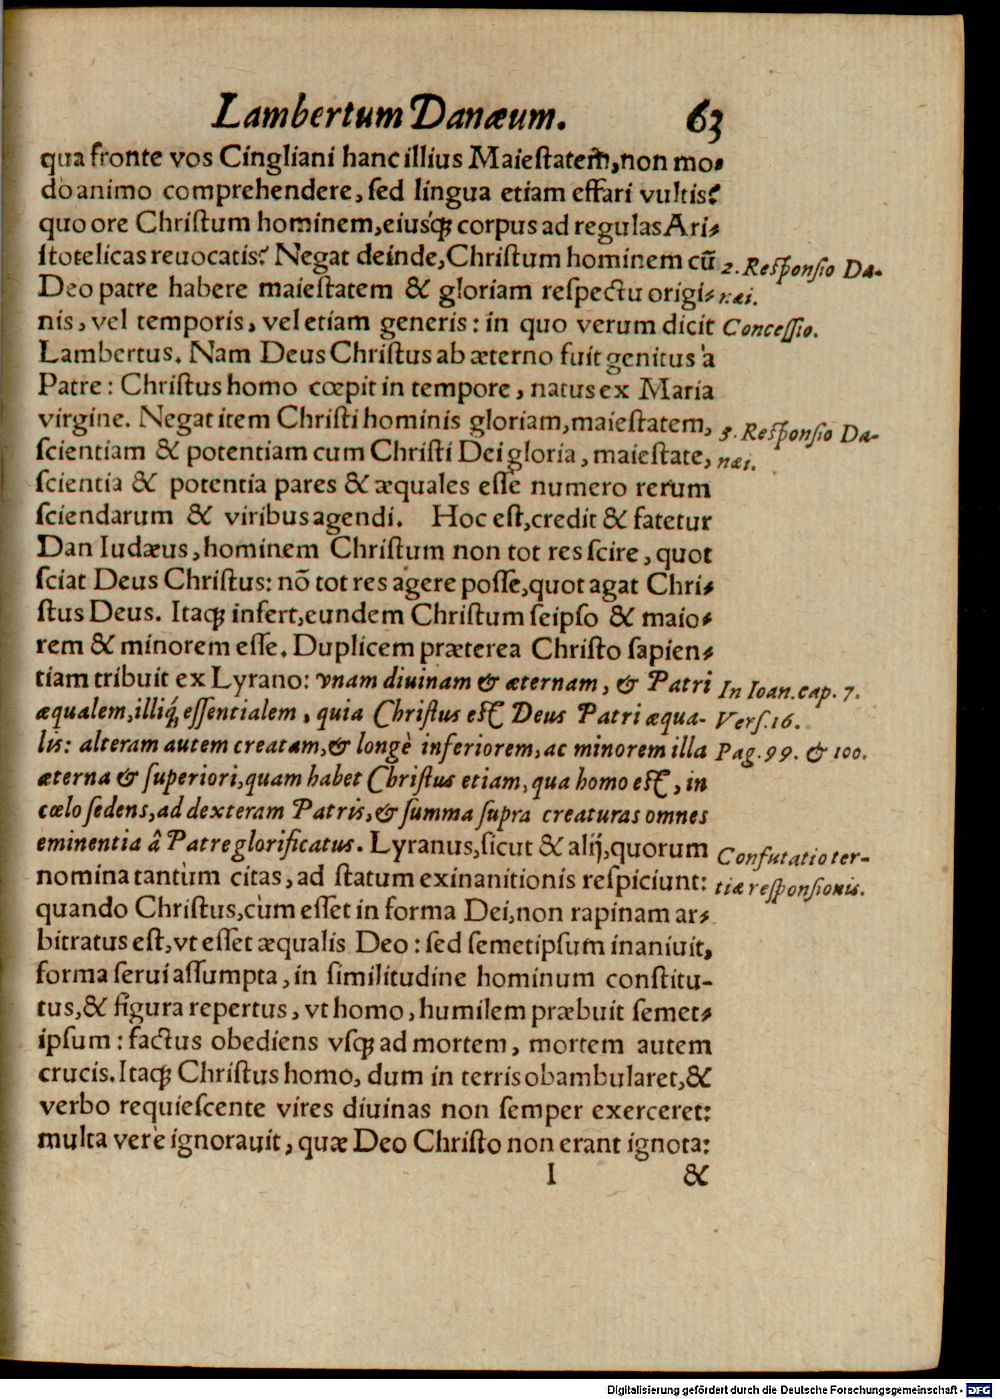 Lambertum Danæum. 63
qua fronte vos Cingliani hanc illius Maieſtatem̃, non mo-
do animo comprehendere, ſed lingua etiam effari vultis?
quo ore Chriſtum hominem, eiusq́; corpus ad regulas Ari-
ſtotelicas reuocatis? Negat deinde, Chriſtum hominem cū
2. Reſponſio Da-
Deo patre habere maieſtatem & gloriam reſpectu origi-
næi.
nis, vel temporis, vel etiam generis: in quo verum dicit
Conceſſio.
Lambertus. Nam Deus Chriſtus ab æterno fuit genitus à
Patre: Chriſtus homo cœpit in tempore, natus ex Maria
virgine. Negat item Chriſti hominis gloriam, maieſtatem,
3. Reſponſio Da-
ſcientiam & potentiam cum Chriſti Dei gloria, maieſtate,
næi.
ſcientia & potentia pares & æquales eſſe numero rerum
ſciendarum & viribus agendi. Hoc eſt, credit & fatetur
Dan Iudæus, hominem Chriſtum non tot res ſcire, quot
ſciat Deus Chriſtus: nō tot res agere poſſe, quot agat Chri-
ſtus Deus. Itaq; infert, eundem Chriſtum ſeipſo & maio-
rem & minorem eſſe. Duplicem præterea Chriſto ſapien-
tiam tribuit ex Lyrano: vnam diuinam & æternam, & Patri
In Ioan. cap. 7.
æqualem, illiq́; eſſentialem, quia Chriſtus eſt Deus Patri æqua-
Verſ. 16.
lis: alteram autem creatam, & longè inferiorem, ac minorem illa
Pag. 99. & 100.
æterna & ſuperiori, quam habet Chriſtus etiam, qua homo eſt, in
cœlo ſedens, ad dexteram Patris, & ſumma ſupra creaturas omnes
eminentia â Patre glorificatus. Lyranus, ſicut & alij, quorum
Confutatio ter-
nomina tantùm citas, ad ſtatum exinanitionis reſpiciunt:
tiæ reſponſionis.
quando Chriſtus, cùm eſſet in forma Dei, non rapinam ar-
bitratus eſt, vt eſſet æqualis Deo: ſed ſemetipſum inaniuit,
forma ſerui aſſumpta, in ſimilitudine hominum conſtitu-
tus, & figura repertus, vt homo, humilem præbuit ſemet-
ipſum: factus obediens vſq; ad mortem, mortem autem
crucis. Itaq; Chriſtus homo, dum in terris obambularet, &
verbo requieſcente vires diuinas non ſemper exerceret:
multa verè ignorauit, quæ Deo Chriſto non erant ignota:
I &
Digitalisierung gefördert durch die Deutsche Forschungsgemeinschaft - DFG